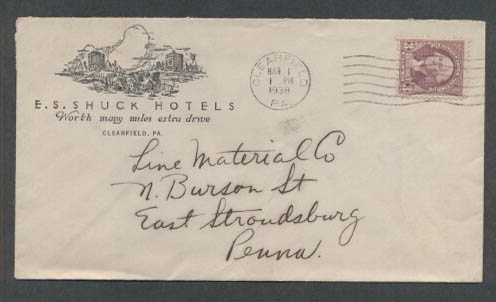 E. S. SHUCK HOTELS
Worth many miles extra drive
CLEARFIELD, PA.
CLEARFIELD
MAR 1
1 PM
1938
PA.
3
Line Material Co
N. Burson St
East Stroudsburg
Penna.